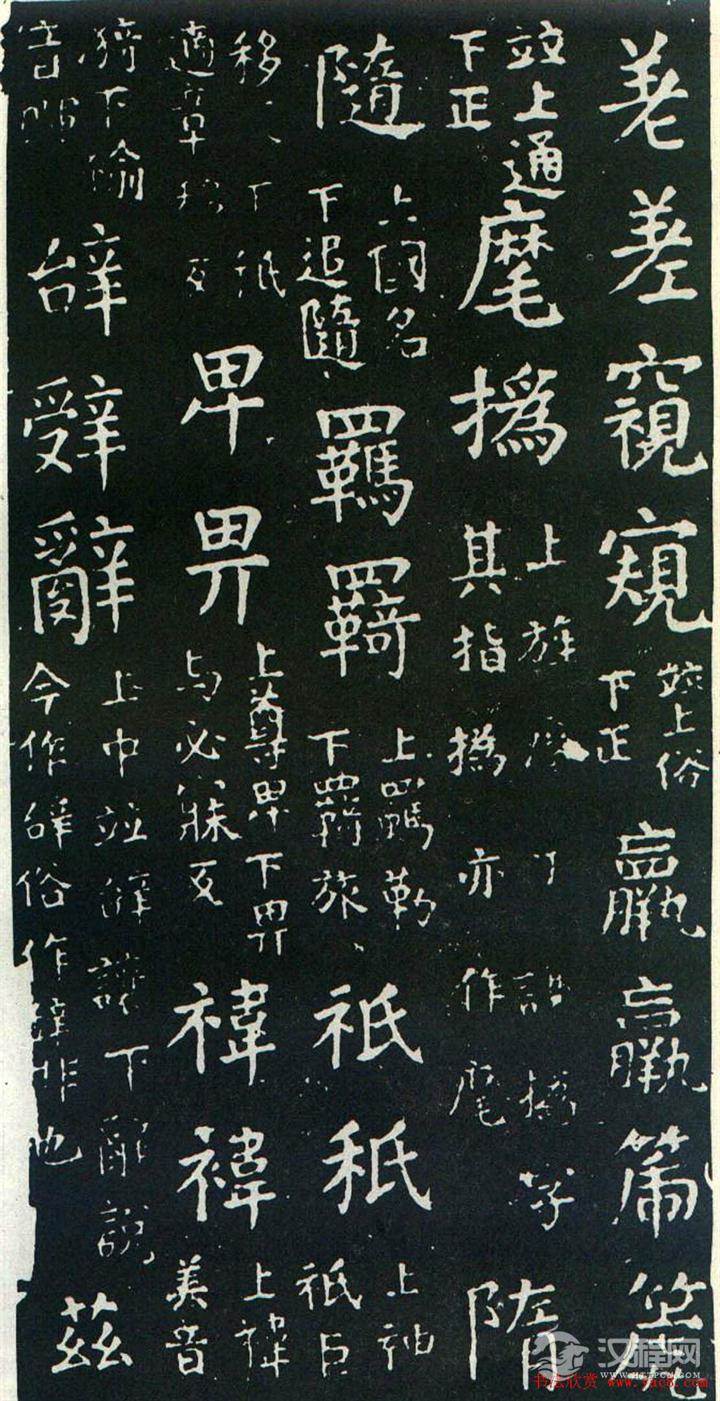 差差窺窺竝上俗下正羸羸篪竾
竝上通下正麾撝上旌麾下撝字其指撝亦作麾隋
隨上國名下追隨羈羇上羈勒下羇旅祇秖上神祇巨
移反下秖適章移反卑畀上尊卑下畀与必寐反禕褘上禕美音
猗下褕音暉辝辤辭上中竝辝讓下辭說今作辝俗作辞非也茲
汉程网
书法欣赏